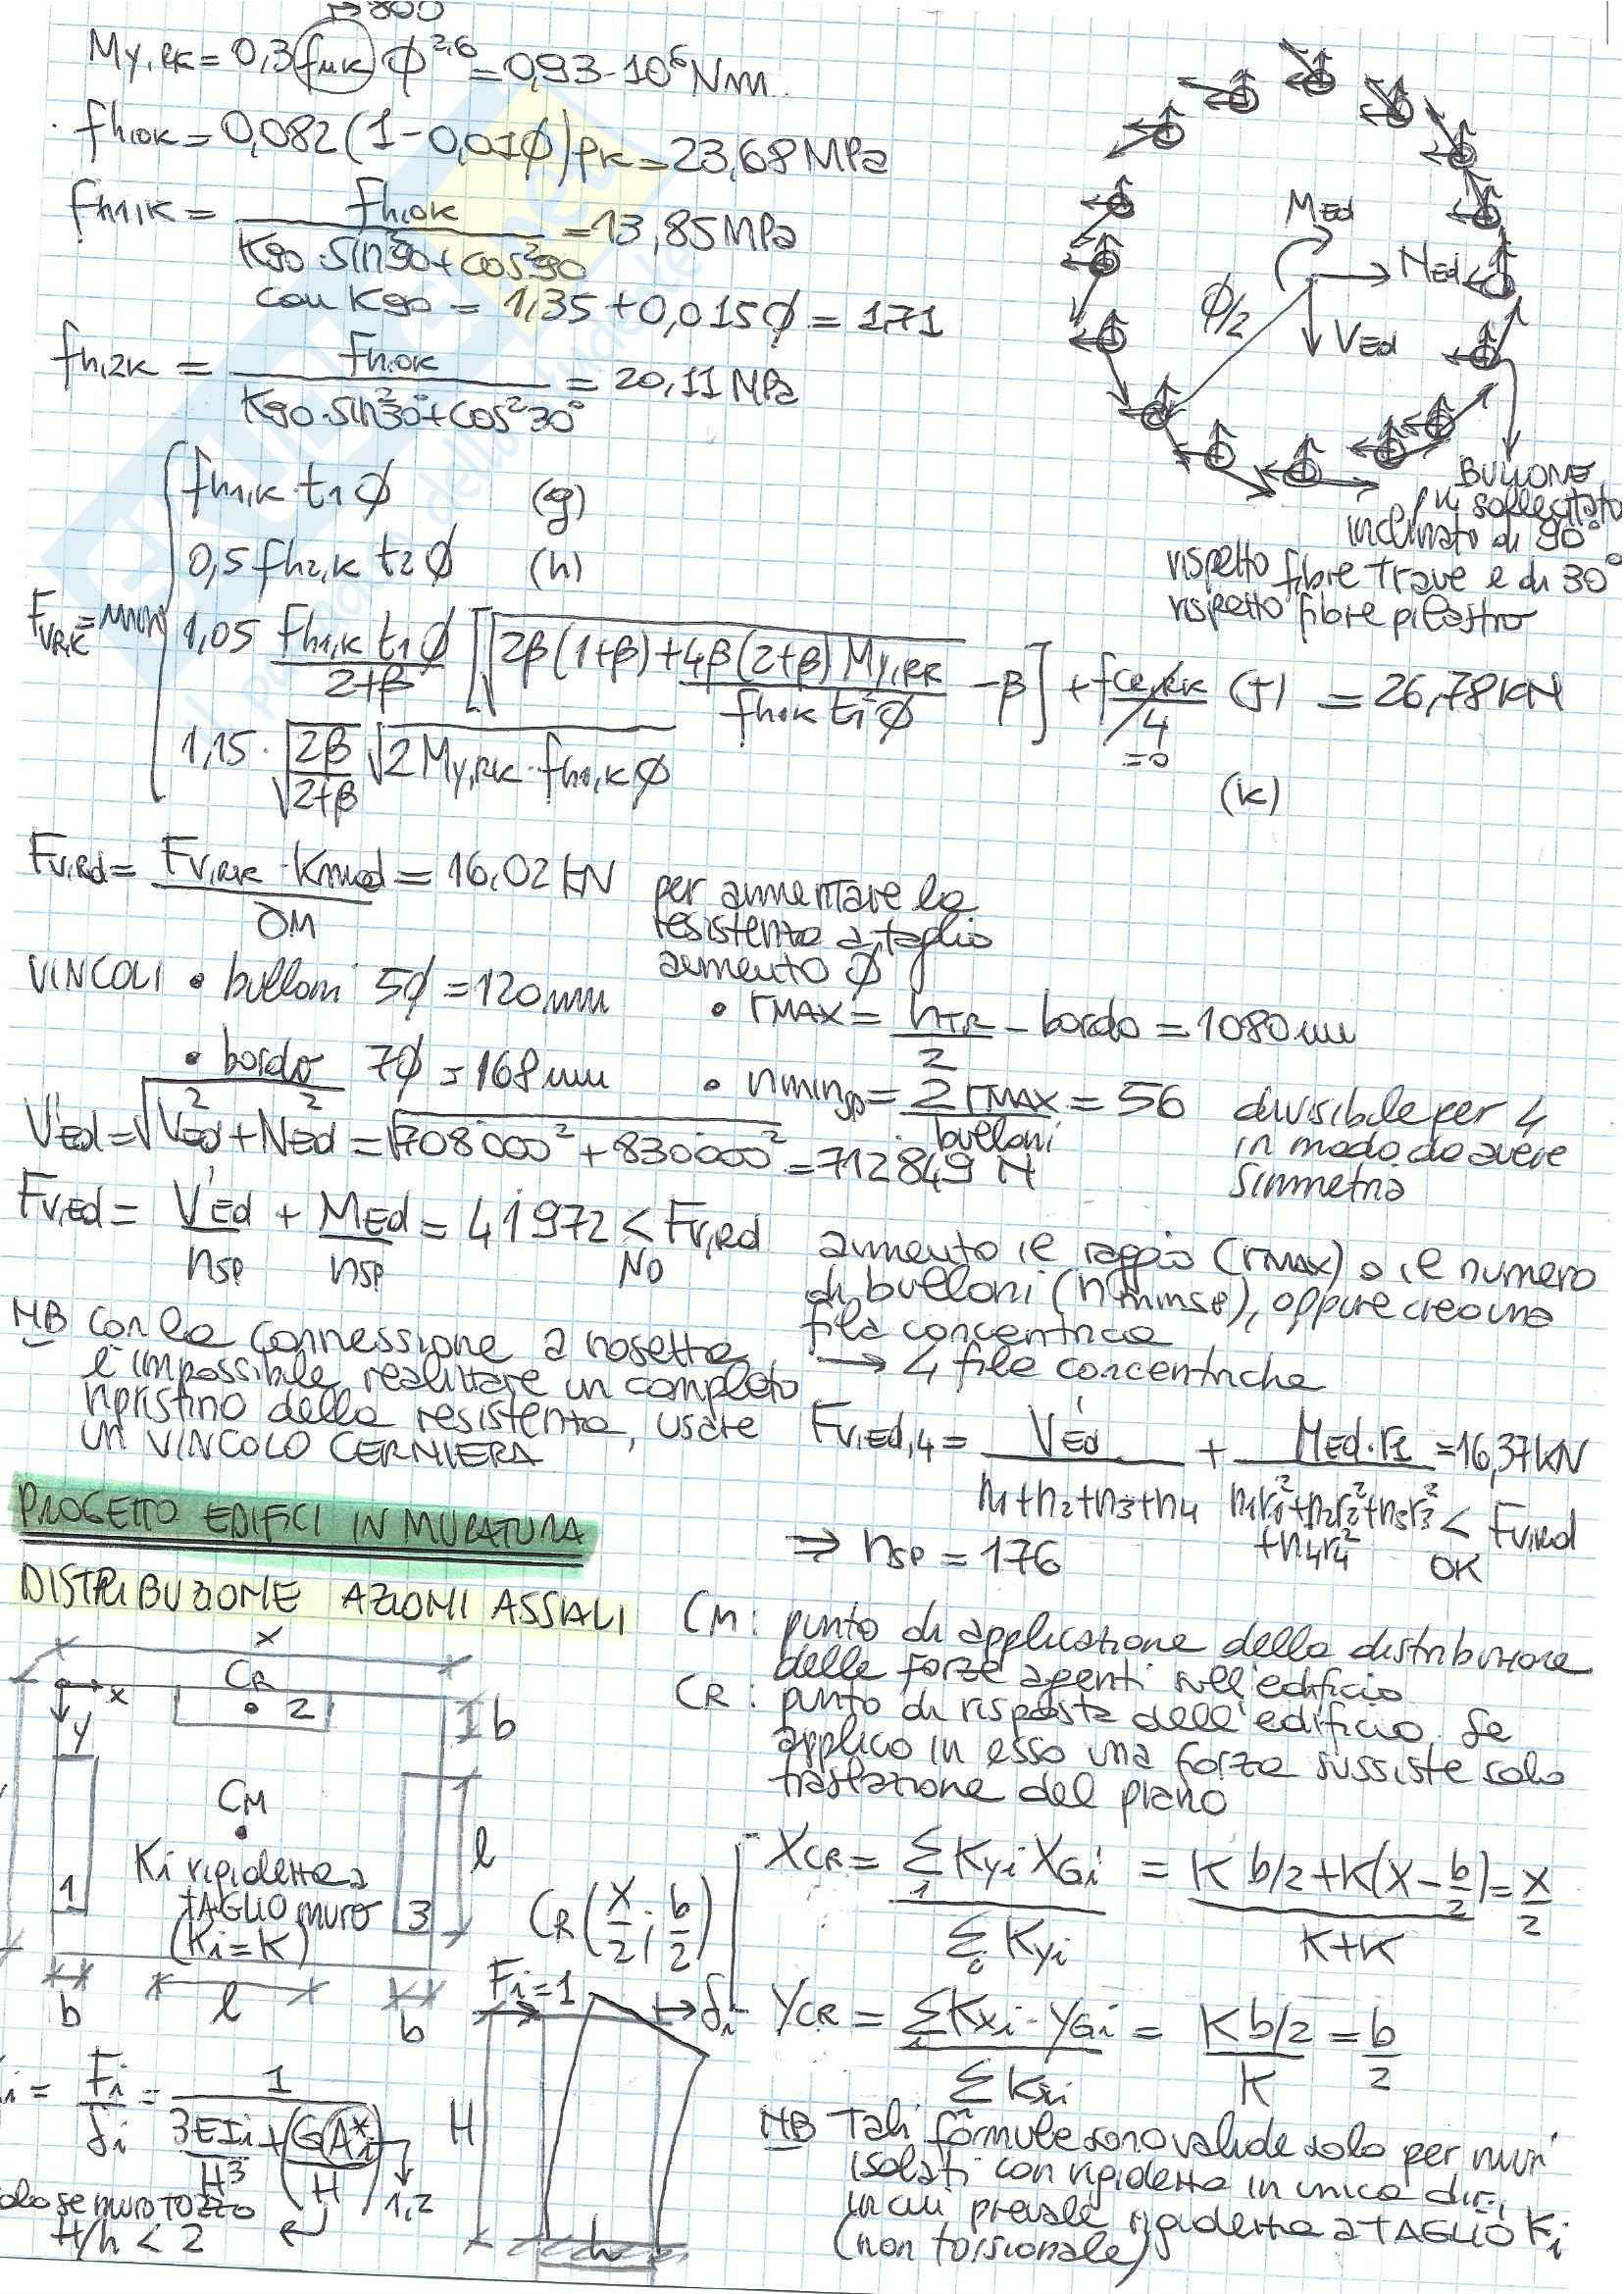 →800
My,Rk = 0,3 fuk ϕ^2,6 = 0,93·10^6 Nm
fh,0k = 0,082 (1 - 0,01ϕ) ρk = 23,68 MPa
fh1,k = fh,0k / (K90·sin²90 + cos²90) = 13,85 MPa
con K90 = 1,35 + 0,015ϕ = 1,71
fh,2k = fh,0k / (K90·sin²30° + cos²30°) = 20,11 MPa
MEd
NEd
ϕ/2
VEd
BULLONE
più sollecitato
inclinato di 90°
rispetto fibre trave e di 30°
rispetto fibre pilastro
Fv,Rk = min
fh1,k t1 ϕ (g)
0,5 fh2,k t2 ϕ (h)
1,05 fh1,k t1 ϕ / (2+β) [√(2β(1+β) + 4β(2+β) My,Rk / (fh,0k t1² ϕ)) - β] + Fax,Rk/4 (j) = 26,78 kN
=0
1,15 · √(2β/(2+β)) √(2 My,Rk · fh1,k ϕ) (k)
Fv,Rd = Fv,Rk · Kmod / γM = 16,02 kN
per aumentare la
resistenza a taglio
aumento ϕ
VINCOLI • bulloni 5ϕ = 120 mm
• rMAX = hTR/2 - bordo = 1080 mm
• bordo 7ϕ = 168 mm
• nmin,sp = 2 rMAX / bulloni = 56 divisibile per 4
in modo da avere
simmetria
V'Ed = √(VEd² + NEd²) = √(708000² + 830000²) = 712849 N
Fv,Ed = V'Ed/nsp + MEd/nsp = 41972 < Fv,Rd
NO
aumento il raggio (rMAX) o il numero
di bulloni (nmin,sp), oppure creo una
fila concentrica
→ 4 file concentriche
NB con la connessione a rosetta
è impossibile realizzare un completo
ripristino della resistenza, usare
un VINCOLO CERNIERA
Fv,Ed,4 = V'Ed / (n1+n2+n3+n4) + MEd·r1 / (n1r1²+n2r2²+n3r3²+n4r4²) = 16,37 kN < Fv,Rd
OK
⇒ nsp = 176
PROGETTO EDIFICI IN MURATURA
DISTRIBUZIONE AZIONI ASSIALI
CM: punto di applicazione della distribuzione
delle forze agenti sull'edificio
CR: punto di risposta dell'edificio. Se
applico in esso una forza sussiste solo
traslazione del piano
x
CR
x
2
b
y
CM
l
Ki rigidezza a
TAGLIO muro
(Ki = K)
1
3
b
l
b
CR (x/2 ; b/2)
XCR = Σ Kyi XGi / Σ Kyi = (K b/2 + K(X - b/2)) / (K+K) = X/2
YCR = Σ Kxi · YGi / Σ Kxi = (K b/2) / K = b/2
Fi=1
→ δi
H
h
i = Fi/δi = 1 / (3EIi/H³ + (GAi*/H))
1,2
solo se muro TOZZO
H/h < 2
NB Tali formule sono valide solo per muri
isolati con rigidezza in unica dir.,
in cui prevale rigidezza a TAGLIO Ki
(non torsionale)